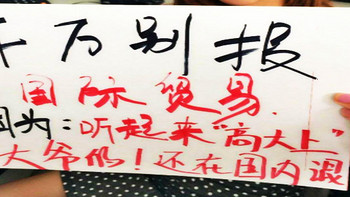 千万别报
国际贸易.
因为:听起来"高大上"
大爷们!还在国内混